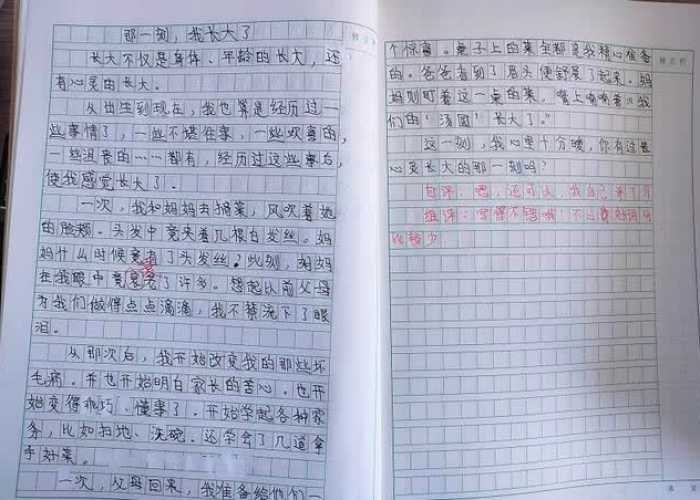 那一刻，我长大了
长大不仅是身体、年龄的长大，还
有心灵的长大。
从出生到现在，我也算是经历过一
些事情了，一些不堪往事，一些欢喜的，
一些沮丧的……都有，经历过这些事后，
使我感觉长大了。
一次，我和妈妈去摘菜，风吹着她
的脸颊。头发中竟夹着几根白发丝。妈
妈什么时候竟有了头发丝？此刻，妈妈
在我眼中竟衰老了许多。想起以前父母
为我们做得点点滴滴，我不禁流下了眼
泪。
从那次后，我开始改变我的那些坏
毛病。并也开始明白家长的苦心。也开
始变得乖巧、懂事了。开始学起各种家
务，比如扫地、洗碗。还学会了几道拿
手好菜。
一次，父母回来，我准备给他们一
个惊喜。桌子上的菜全都是我精心准备
的。爸爸看到了眉头便舒展了起来。妈
妈则盯着这一桌的菜，嘴上喃喃着：我
们的‘汤圆’长大了。”
这一刻，我心里十分暖，你有这量
心灵长大的那一刻吗？
自评：嗯，还可以，我自己
组评：写得不错哦！不过好词
比较少